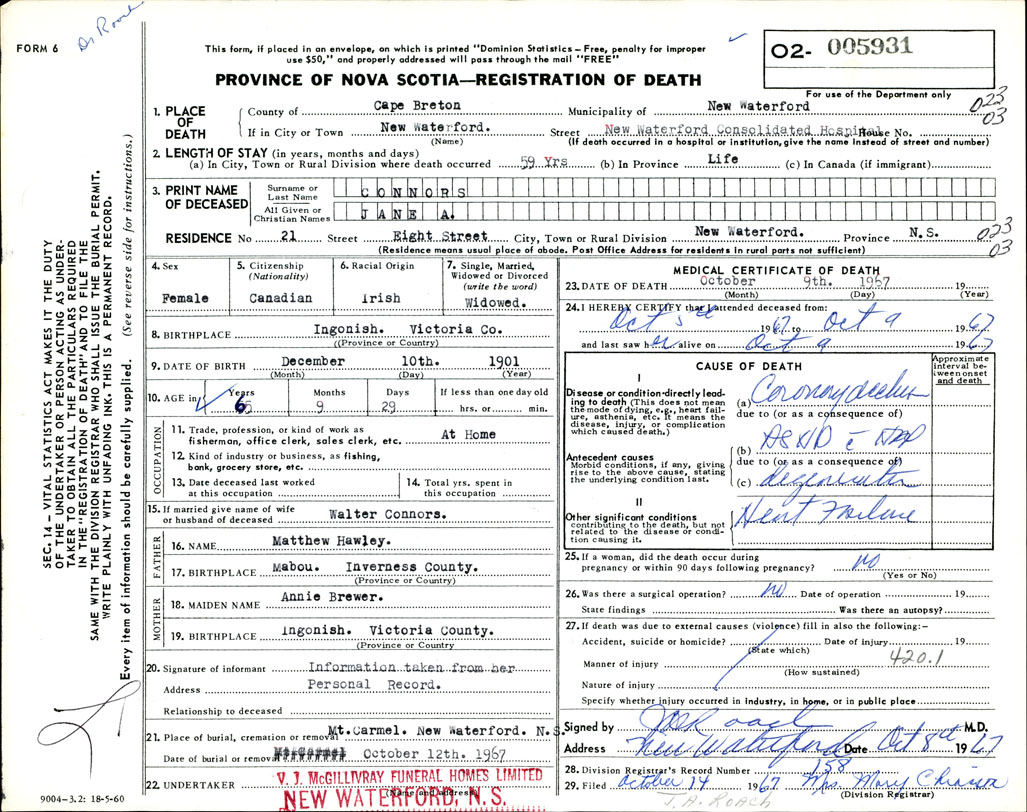 FORM 6
Dr Roach
This form, if placed in an envelope, on which is printed "Dominion Statistics – Free, penalty for improper
use $50," and properly addressed will pass through the mail "FREE"
PROVINCE OF NOVA SCOTIA—REGISTRATION OF DEATH
O2- 005931
For use of the Department only
023
03
1. PLACE OF DEATH
County of Cape Breton Municipality of New Waterford
If in City or Town New Waterford. Street New Waterford Consolidated Hospital House No.
(Name) (If death occurred in a hospital or institution, give the name instead of street and number)
2. LENGTH OF STAY (in years, months and days)
(a) In City, Town or Rural Division where death occurred 59 Yrs (b) In Province Life (c) In Canada (if immigrant)
3. PRINT NAME OF DECEASED
Surname or Last Name CONNORS
All Given or Christian Names JANE A.
RESIDENCE No 21 Street Eight Street City, Town or Rural Division New Waterford. Province N.S.
023
03
(Residence means usual place of abode. Post Office Address for residents in rural parts not sufficient)
4. Sex
Female
5. Citizenship
(Nationality)
Canadian
6. Racial Origin
Irish
7. Single, Married,
Widowed or Divorced
(write the word)
Widowed.
8. BIRTHPLACE Ingonish. Victoria Co.
((Province or Country)
9. DATE OF BIRTH December 10th. 1901
(Month) (Day) (Year)
10. AGE in Years Months Days If less than one day old
65 9 29 hrs. or min.
OCCUPATION
11. Trade, profession, or kind of work as
fisherman, office clerk, sales clerk, etc. At Home
12. Kind of industry or business, as fishing,
bank, grocery store, etc.
13. Date deceased last worked
at this occupation
14. Total yrs. spent in
this occupation
15. If married give name of wife
or husband of deceased Walter Connors.
FATHER
16. NAME Matthew Hawley.
17. BIRTHPLACE Mabou. Inverness County.
(Province or Country)
MOTHER
18. MAIDEN NAME Annie Brewer.
19. BIRTHPLACE Ingonish. Victoria County.
(Province or Country
20. Signature of informant Information taken from her
Address Personal Record.
Relationship to deceased
21. Place of burial, cremation or removal Mt.Carmel. New Waterford. N.S.
Date of burial or removal October 12th. 1967
22. UNDERTAKER
(Name and address)
V. J. McGILLIVRAY FUNERAL HOMES LIMITED
NEW WATERFORD, N. S.
MEDICAL CERTIFICATE OF DEATH
23. DATE OF DEATH October 9th. 1967 19
(Month) (Day) (Year)
24. I HEREBY CERTIFY that I attended deceased from:
Oct 3rd 1967 to Oct 9 1967
and last saw her alive on Oct 9 1967
CAUSE OF DEATH
Approximate
interval be-
tween onset
and death
I
Disease or condition directly lead-
ing to death (This does not mean
the mode of dying, e.g., heart fail-
ure, asthenia, etc. It means the
disease, injury, or complication
which caused death.)
(a) Coronary
due to (or as a consequence of)
Antecedent causes
Morbid conditions, if any, giving
rise to the above cause, stating
the underlying condition last.
(b) ASHD c
due to (or as a consequence of)
(c)
II
Other significant conditions
contributing to the death, but not
related to the disease or condi-
tion causing it.
Heart Failure
25. If a woman, did the death occur during
pregnancy or within 90 days following pregnancy? no
(Yes or No)
26. Was there a surgical operation? no Date of operation 19
State findings Was there an autopsy?
27. If death was due to external causes (violence) fill in also the following:–
Accident, suicide or homicide? Date of injury 19
(State which)
420.1
Manner of injury
(How sustained)
Nature of injury
Specify whether injury occurred in industry, in home, or in public place
Signed by Roach M.D.
Address New Waterford Date Oct 8th 1967
28. Division Registrar's Record Number 158
29. Filed October 14 1967 Mrs. Mary
(Division Registrar)
J. A. ROACH
SEC. 14 – VITAL STATISTICS ACT MAKES IT THE DUTY
OF THE UNDERTAKER OR PERSON ACTING AS UNDER-
TAKER TO OBTAIN ALL THE PARTICULARS REQUIRED
IN THE "REGISTRATION OF DEATH" AND TO FILE THE
SAME WITH THE DIVISION REGISTRAR WHO SHALL ISSUE THE BURIAL PERMIT.
WRITE PLAINLY WITH UNFADING INK. THIS IS A PERMANENT RECORD.
Every item of information should be carefully supplied. (See reverse side for instructions.)
9004–3.2: 18-5-60